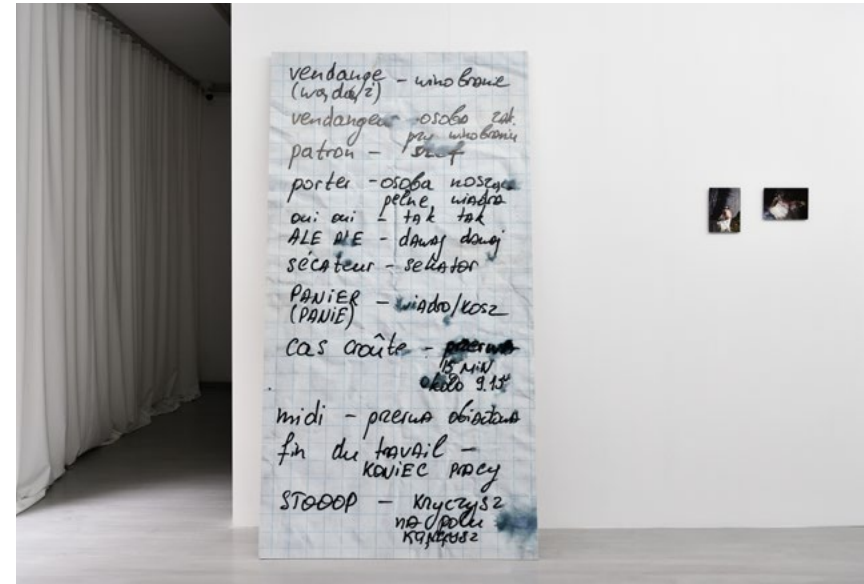 vendange – winobranie
(wądąż)
vendangeur – osoba zat.
przy winobraniu
patron – szef
porter – osoba nosząca
pełne wiadra
oui oui – tak tak
ALE ALE – dawaj dawaj
sécateur – sekator
PANIER – wiadro/kosz
(PANIE)
cas croûte – przerwa
15 MIN
około 9.15
midi – przerwa obiadowa
fin du travail –
KONIEC PRACY
STOOOP – KRYCZYSZ
na polu